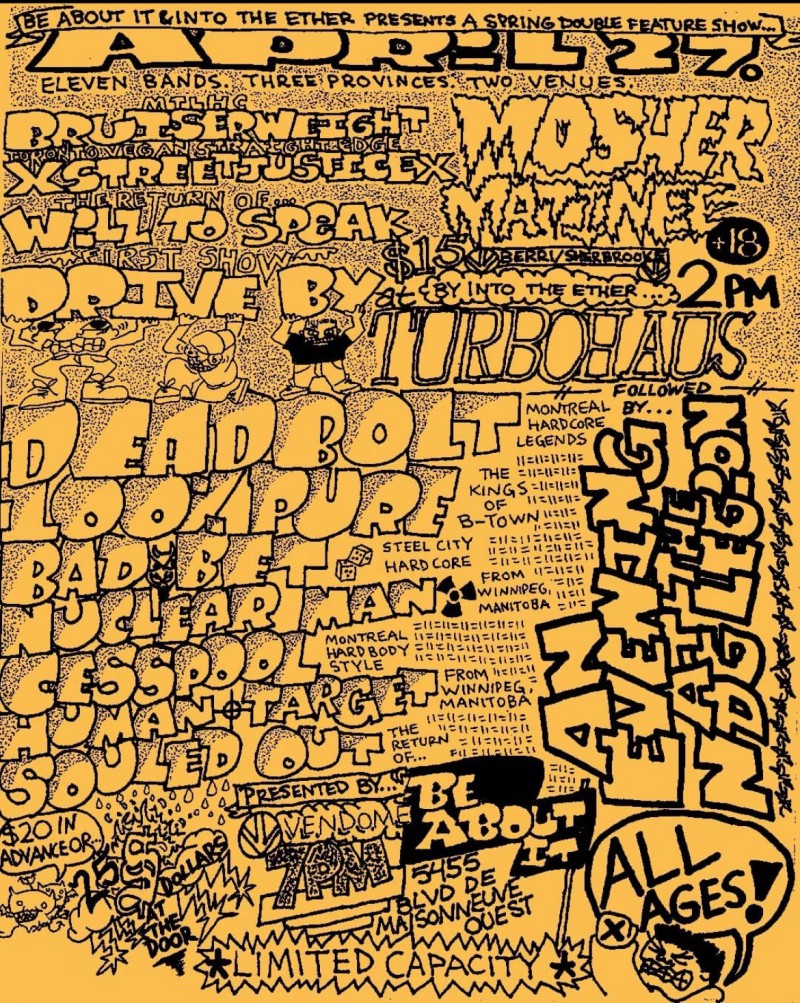 BE ABOUT IT & INTO THE ETHER PRESENTS A SPRING DOUBLE FEATURE SHOW...
APRIL 27.
ELEVEN BANDS. THREE PROVINCES. TWO VENUES.
MTLHC
BRUISERWEIGHT
TORONTO VEGAN STRAIGHT EDGE
XSTREET JUSTICEX
THE RETURN OF...
WILL TO SPEAK
FIRST SHOW
DRIVE BY
MOSHER
MATINEE
+18
$15 BERRI/SHERBROOKE
at BY INTO THE ETHER... 2 PM
TURBOHAUS
FOLLOWED
BY...
AN
EVENING
AT THE
NDG LEGION
DEADBOLT
MONTREAL
HARDCORE
LEGENDS
100% PURE
THE
KINGS
OF
B-TOWN
BAD BET
STEEL CITY
HARDCORE
NUCLEAR MAN
FROM
WINNIPEG,
MANITOBA
CESSPOOL
MONTREAL
HARDBODY
STYLE
HUMAN TARGET
FROM
WINNIPEG,
MANITOBA
SOULED OUT
THE
RETURN
OF...
PRESENTED BY...
BE
ABOUT
IT
VENDOME
7PM
5455
BLVD DE
MAISONNEUVE
OUEST
$20 IN
ADVANCE OR...
25
DOLLARS
AT
THE
DOOR
ALL
AGES!
X
*LIMITED CAPACITY*